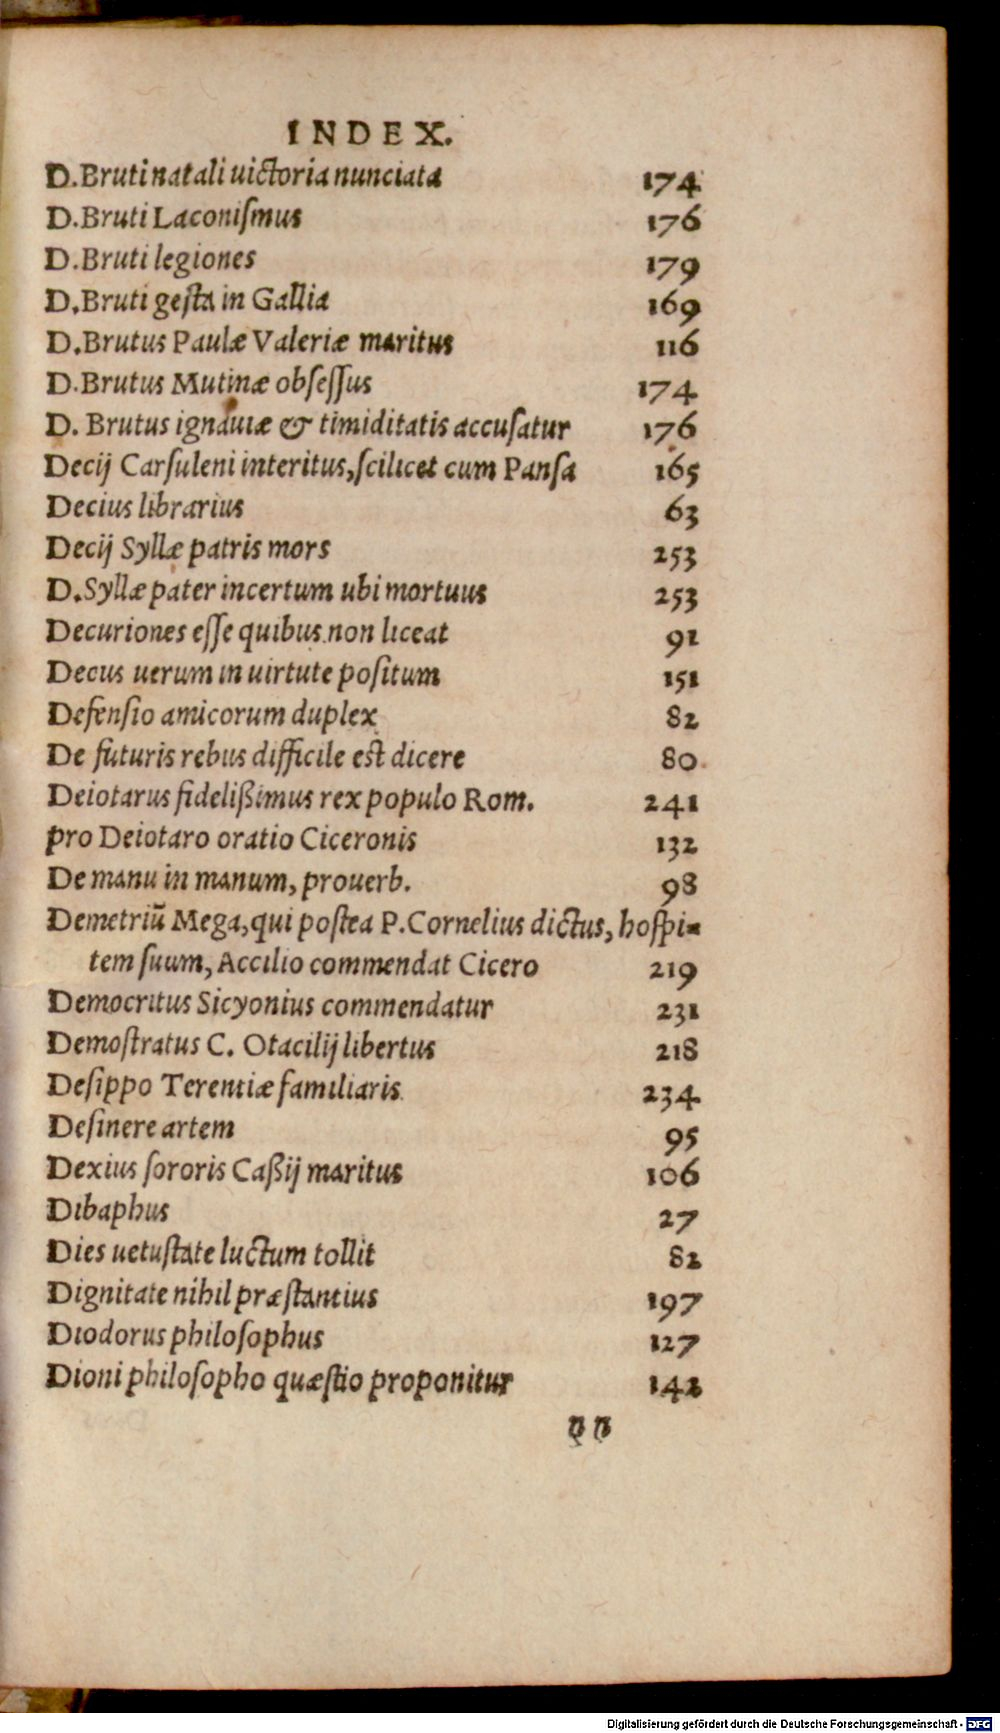 INDEX.
D.Bruti natali uictoria nunciata 174
D.Bruti Laconiſmus 176
D.Bruti legiones 179
D.Bruti geſta in Gallia 169
D.Brutus Paulæ Valeriæ maritus 116
D.Brutus Mutinæ obſeſſus 174
D. Brutus ignauiæ & timiditatis accuſatur 176
Decij Carſuleni interitus,ſcilicet cum Panſa 165
Decius librarius 63
Decij Syllæ patris mors 253
D.Syllæ pater incertum ubi mortuus 253
Decuriones eſſe quibus non liceat 91
Decus uerum in uirtute poſitum 151
Defenſio amicorum duplex 82
De futuris rebus difficile eſt dicere 80
Deiotarus fidelißimus rex populo Rom. 241
pro Deiotaro oratio Ciceronis 132
De manu in manum, prouerb. 98
Demetriũ Mega,qui poſtea P.Cornelius dictus, hoſpi-
tem ſuum, Accilio commendat Cicero 219
Democritus Sicyonius commendatur 231
Demoſtratus C. Otacilij libertus 218
Deſippo Terentiæ familiaris 234
Deſinere artem 95
Dexius ſororis Caßij maritus 106
Dibaphus 27
Dies uetuſtate luctum tollit 82
Dignitate nihil præſtantius 197
Diodorus philoſophus 127
Dioni philoſopho quæſtio proponitur 142
Digitalisierung gefördert durch die Deutsche Forschungsgemeinschaft - DFG